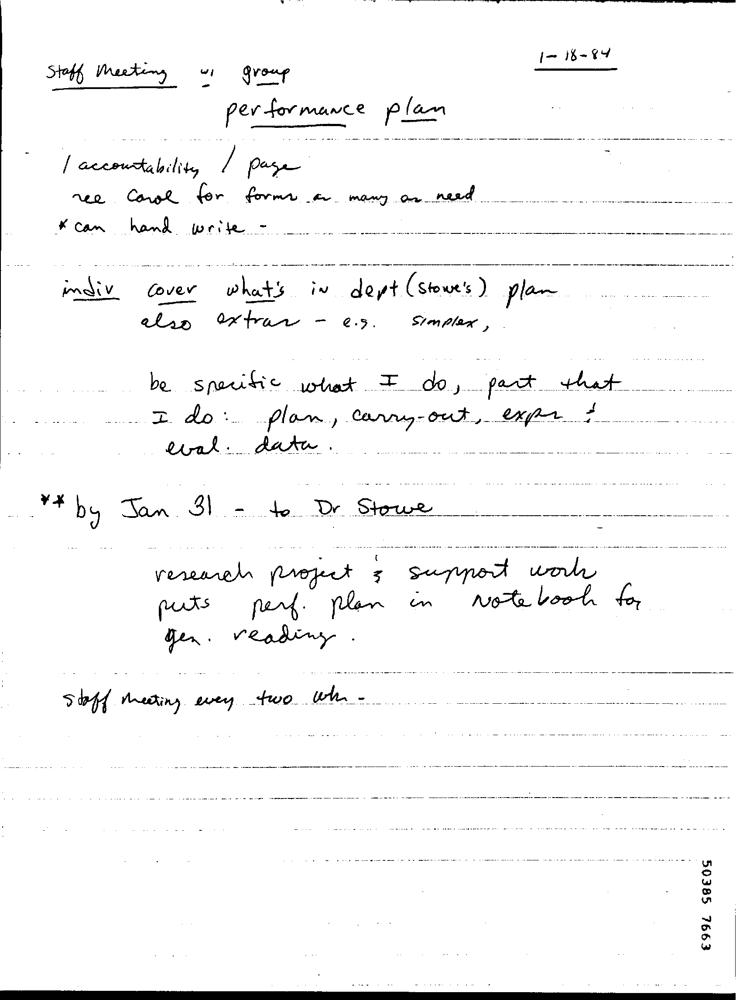 1-18-84
Staff Meeting w/ group
performance plan
1 accountability / page
see Carol for forms as many as need
* can hand write -
indiv cover what's in dept (Stowe's) plan
also extras - e.g. simplex,
be specific what I do, part that
I do: plan, carry-out, expr &
eval. data.
** by Jan 31 - to Dr Stowe
research project & support work
puts perf. plan in Notebook for
gen. reading.
Staff Meeting every two wks -
50385 7663